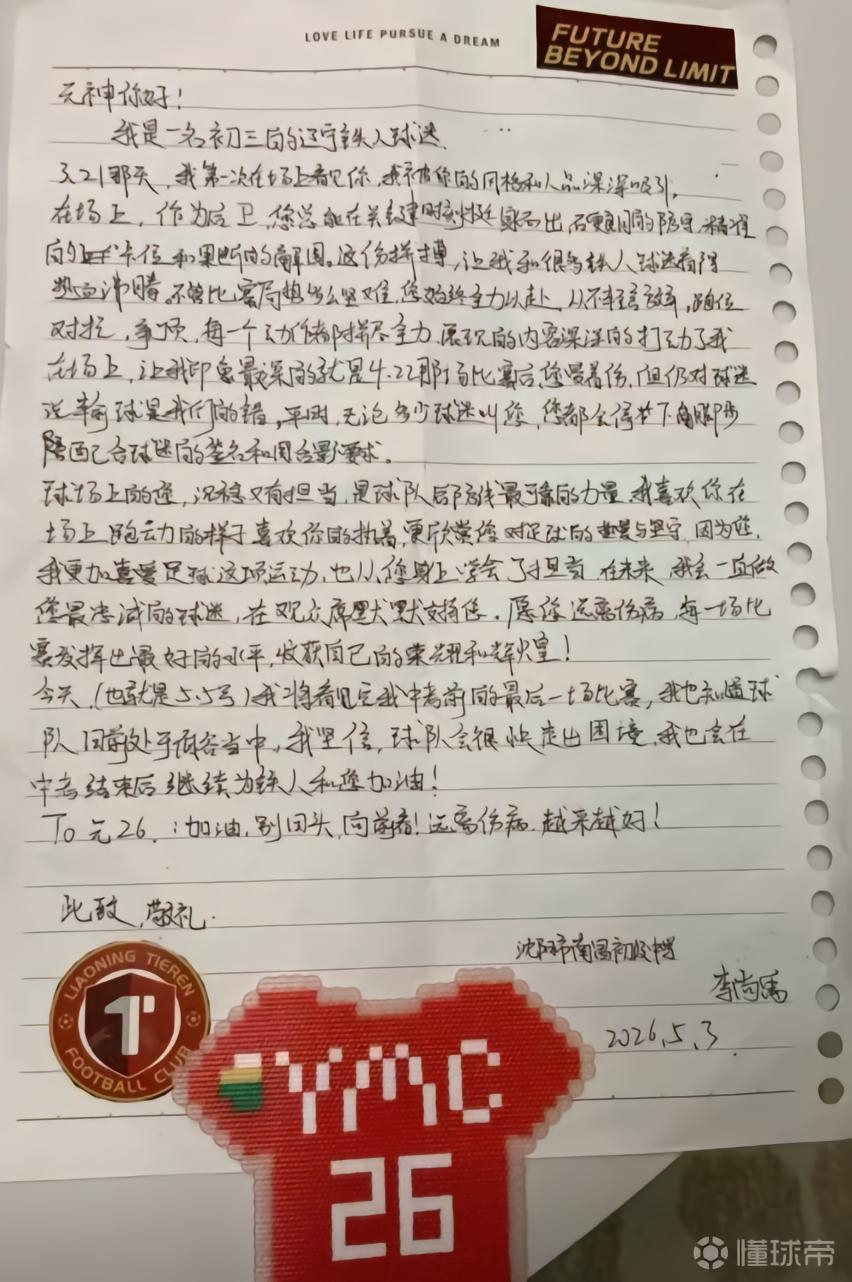 LOVE LIFE PURSUE A DREAM
FUTURE
BEYOND LIMIT
元神你好！
我是一名初三的辽宁铁人球迷.
3.21那天，我第一次在场上看见你，我就被你的风格和人品深深吸引，
在场上，作为后卫，您总能在关键时刻挺身而出 石更朗的防守、精准
的卡位和果断的解围。这份拼搏，让我和很多铁人球迷看得
热血沸腾。不管比赛局势多么坚难，您始终全力以赴，从不言放弃，跑位
对抗，争顶，每一个动作都拼尽全力 展现的内容深深的打动了我
在场上，让我印象最深的就是4.22那场比赛后，您受着伤，但仍对球迷
说输球是我们的错。平时，无论多少球迷叫您，您都会停下脚步
陪配合球迷的签名和图合影要求.
球场上的您，沉稳又有担当，是球队后防线最可靠的力量.我喜欢你在
场上跑动的样子喜欢你的执着,更欣赏您对足球的热爱与坚守，因为您，
我更加喜爱足球这项运动，也从您身上学会了担当.在未来，我会一直做
您最忠诚的球迷，在观众席默默支持您。愿您远离伤病，每一场比
赛发挥出最好的水平，收获自己的荣耀和辉煌！
今天（也就是5.5号）我将看见完我中考前的最后一场比赛，我也知道球
队目前处于低谷当中，我坚信，球队会很快走出困境，我也会在
中考结束后继续为铁人和您加油！
To 元26.：加油，别回头，向前看！远离伤病，越来越好！
此致，敬礼.
沈阳市南昌初级中学
李尚
2026.5.3.
LIAONING TIEREN
FOOTBALL CLUB
YMC
26
懂球帝